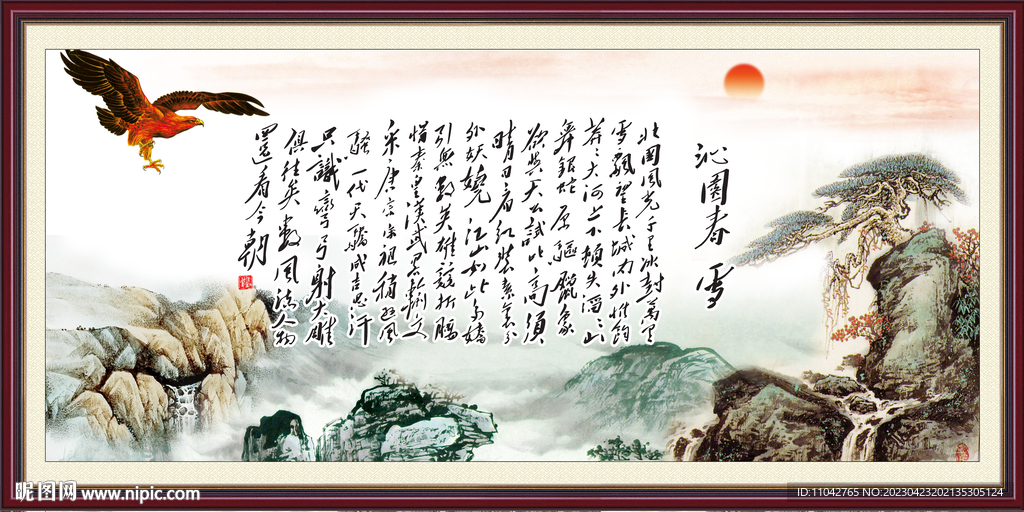 沁園春 雪
北國風光千里冰封萬里
雪飄望長城内外惟餘
莽々大河上下頓失滔々山
舞銀蛇原驅臘象
欲與天公試比高須
晴日看紅裝素裹分
外妖嬈江山如此多嬌
引無數英雄競折腰
惜秦皇漢武略輸文
采唐宗宋祖稍遜風
騷一代天驕成吉思汗
只識彎弓射大雕
俱往矣數風流人物
還看今朝
昵图网 www.nipic.com
ID:11042765 NO:20230423202135305124